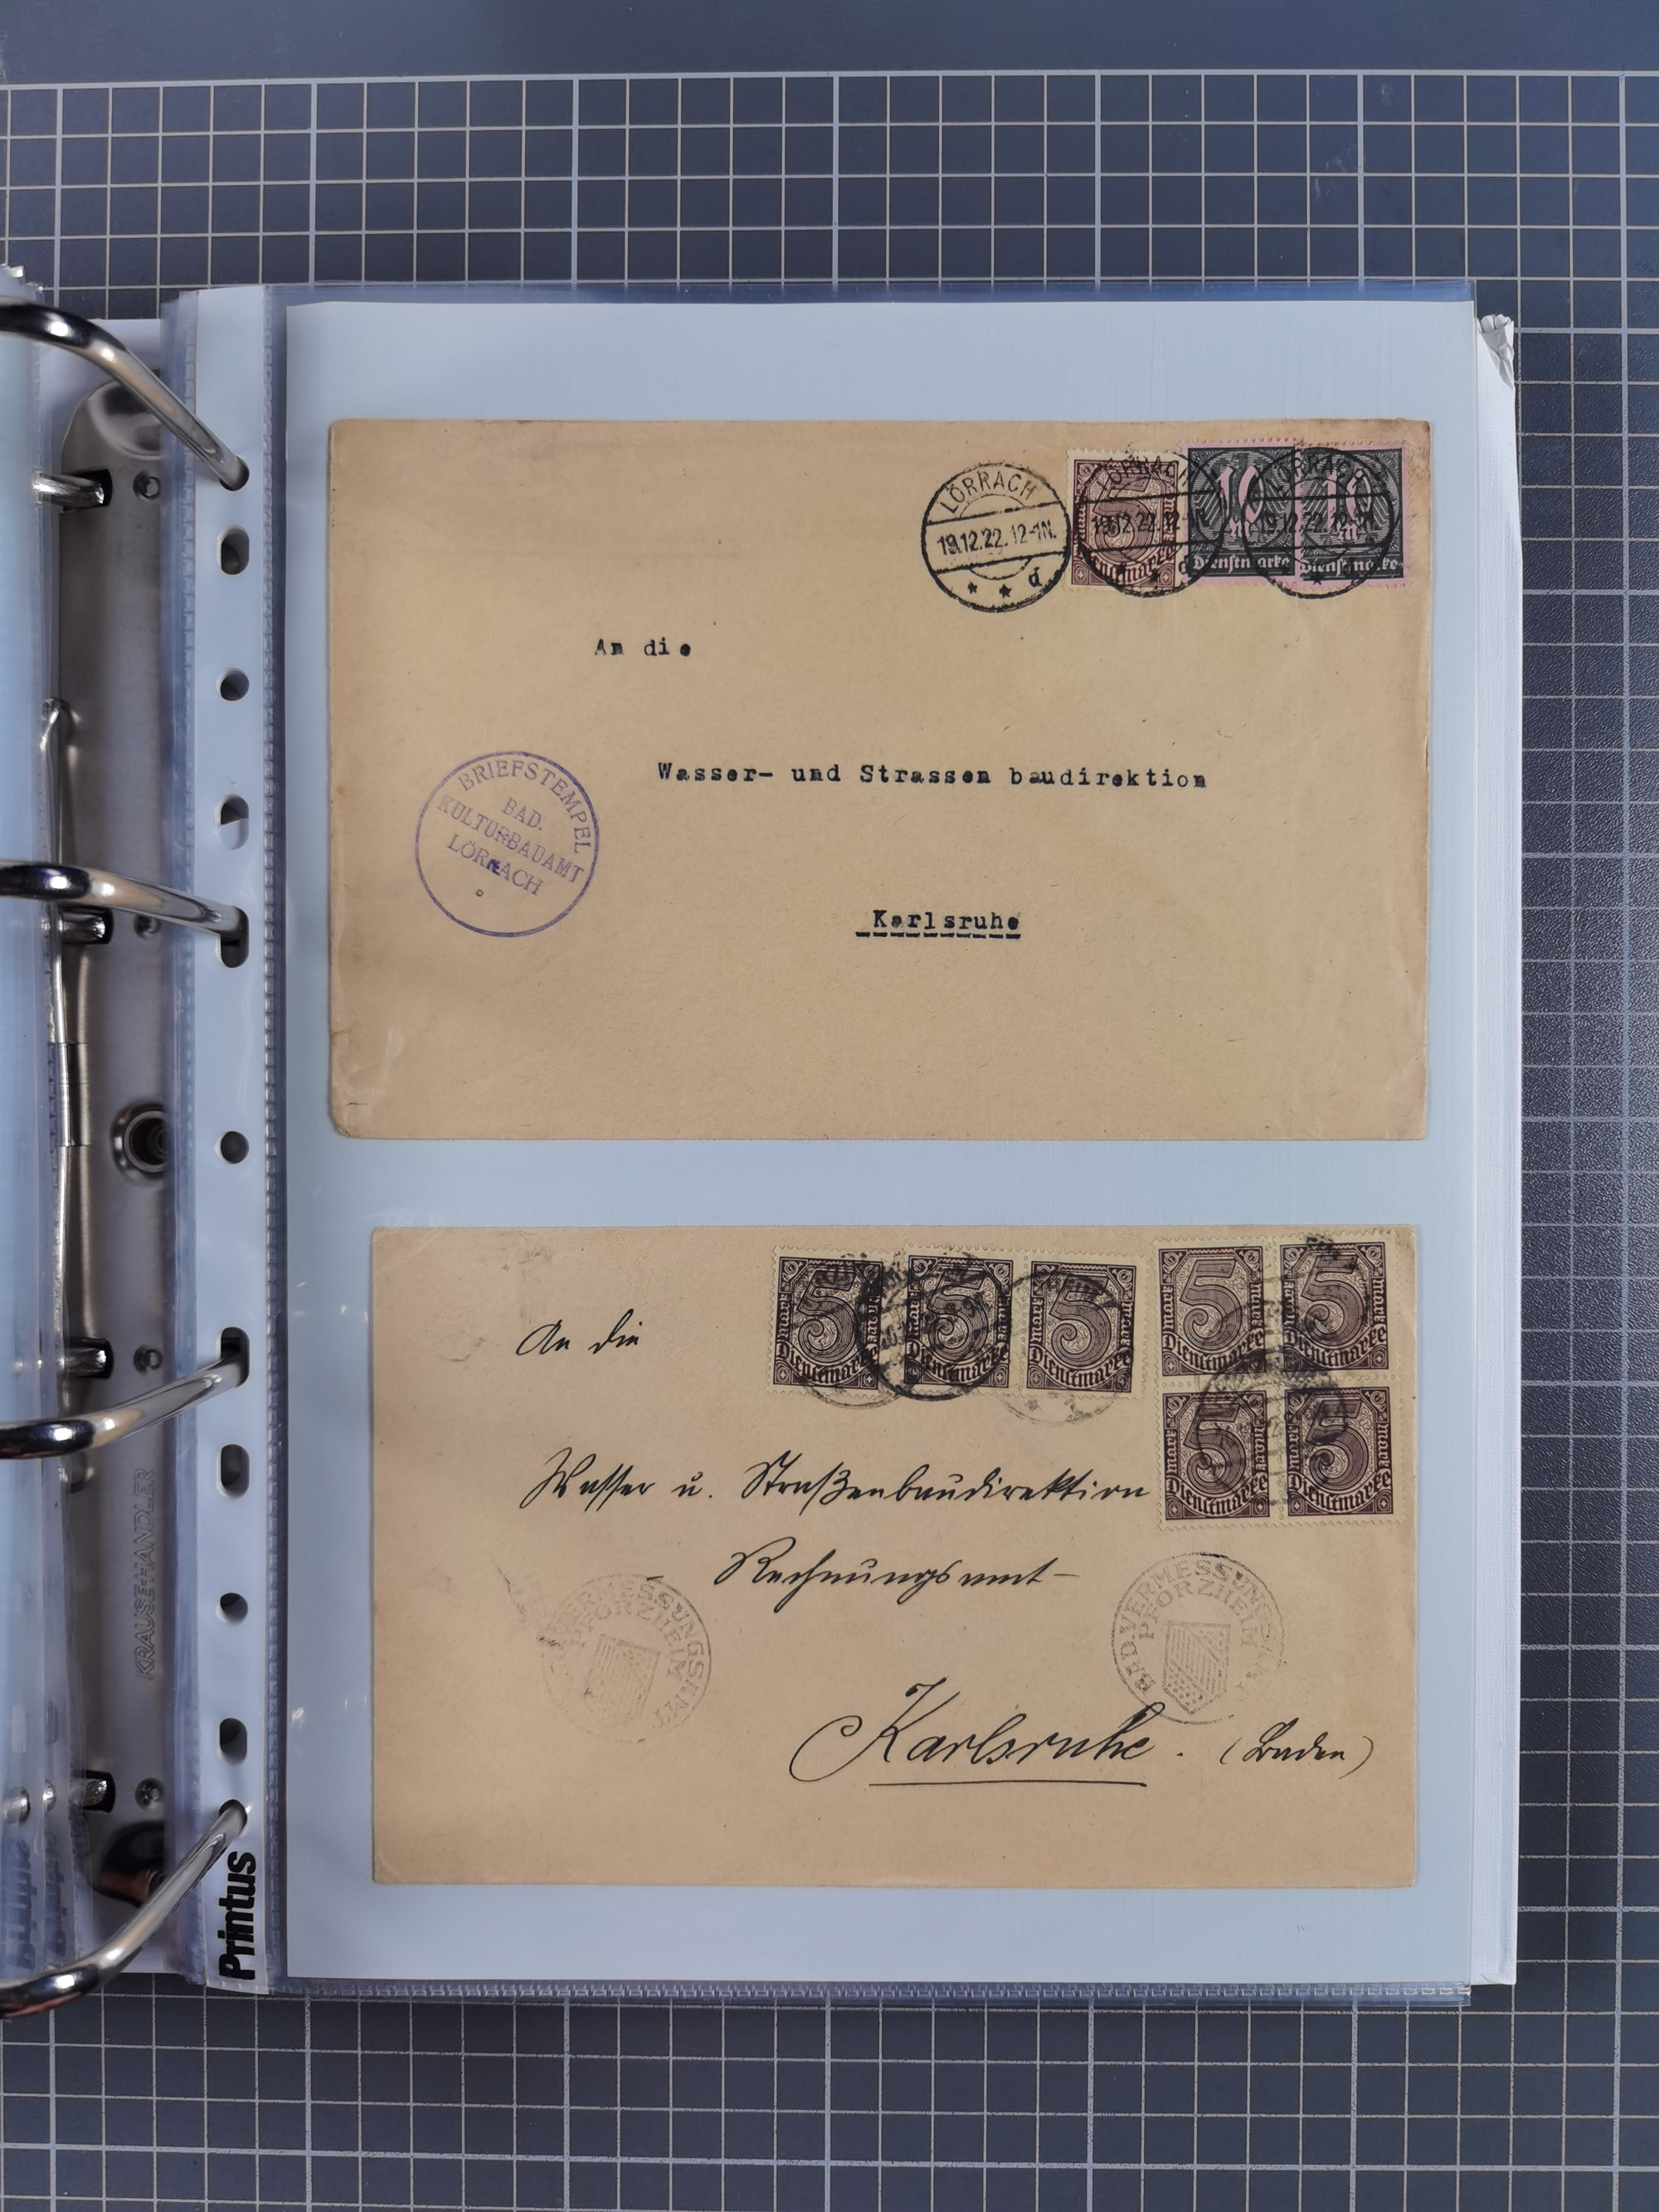 LÖRRACH
19.12.22. 12-1N.
* * d
5
Dienstmarke
10
Dienstmarke
10
Dienstmarke
An die
Wasser- und Strassen baudirektion
Karlsruhe
BRIEFSTEMPEL
BAD.
KULTURBAUAMT
LÖRRACH
5 mark Dienstmarke
5 mark Dienstmarke
5 mark Dienstmarke
5 mark Dienstmarke
5 mark Dienstmarke
5 mark Dienstmarke
5 mark Dienstmarke
An die
Wasser u. Straßenbaudirektion
- Rechnungsamt -
Karlsruhe. (Baden)
VERMESSUNGSAMT
PFORZHEIM
BAD. VERMESSUNGS
PFORZHEIM
KRAUSE-HANDLER
Printus